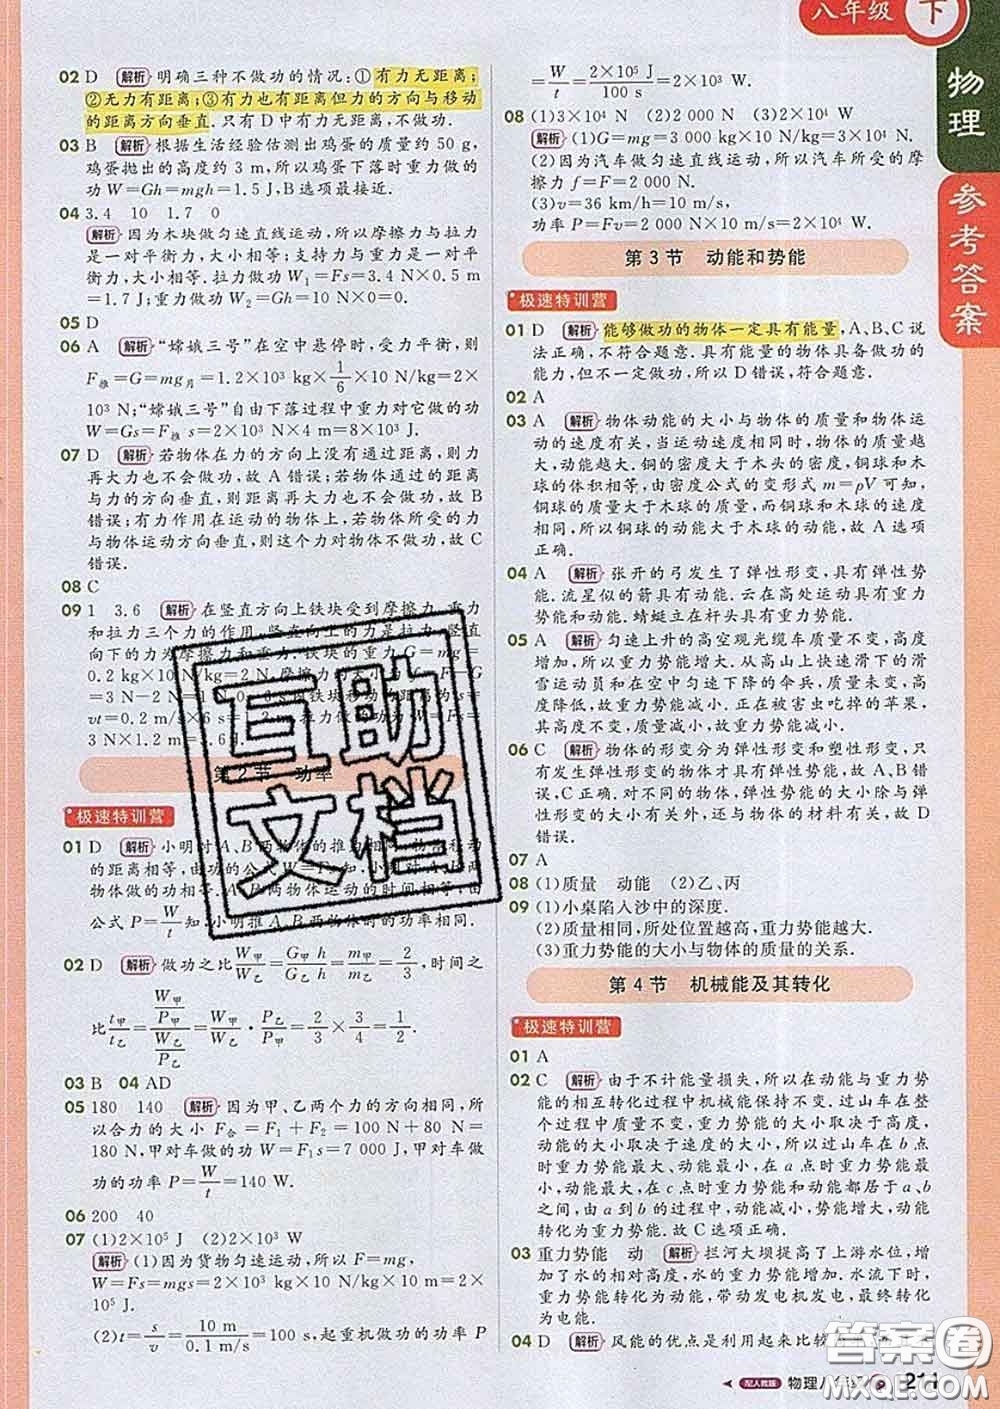 八年级 下
物理
参考答案
02 D 解析 明确三种不做功的情况:①有力无距离;
②无力有距离;③有力也有距离但力的方向与移动
的距离方向垂直.只有D中有力无距离,不做功.
03 B 解析 根据生活经验估测出鸡蛋的质量约50 g,
鸡蛋抛出的高度约3 m,所以鸡蛋下落时重力做的
功W=Gh=mgh=1.5 J,B选项最接近.
04 3.4 10 1.7 0
解析 因为木块做匀速直线运动,所以摩擦力与拉力
是一对平衡力,大小相等;支持力与重力是一对平
衡力,大小相等.拉力做功W₁=Fs=3.4 N×0.5 m
=1.7 J;重力做功W₂=Gh=10 N×0=0.
05 D
06 A 解析 “嫦娥三号”在空中悬停时,受力平衡,则
F推=G=mg月=1.2×10³ kg×1/6×10 N/kg=2×
10³ N;“嫦娥三号”自由下落过程中重力对它做的功
W=Gs=F推 s=2×10³ N×4 m=8×10³ J.
07 D 解析 若物体在力的方向上没有通过距离,则力
再大力也不会做功,故A错误;若物体通过的距离
与力的方向垂直,则距离再大力也不会做功,故B
错误;有力作用在运动的物体上,若物体所受的力
与物体运动方向垂直,则这个力对物体不做功,故C
错误.
08 C
09 1 3.6 解析 在竖直方向上铁块受到摩擦力、重力
和拉力三个力的作用,竖直向上的力为拉力,竖直
向下的力为摩擦力和重力.铁块的重力G=mg=
0.2 kg×10 N/kg=2 N,摩擦力f=F-G=
3 N-2 N=1 N;铁块移动的距离为s=
vt=0.2 m/s×6 s=1.2 m,拉力做功W=Fs=
3 N×1.2 m=3.6 J.
第2节 功率
极速特训营
01 D 解析 小明对A、B两物体的推力相同,移动
的距离相等,由功的公式W=Fs知,小明对A、B
做的功相等.A、B两物体运动的时间相等,由
公式P=W/t知,小明推A、B两物体时的功率相同.
02 D 解析 做功之比W甲/W乙=G甲h/G乙h=m甲/m乙=2/3,时间之
比t甲/t乙=(W甲/P甲)/(W乙/P乙)=W甲/W乙·P乙/P甲=2/3×3/4=1/2.
03 B 04 AD
05 180 140 解析 因为甲、乙两个力的方向相同,所
以合力的大小F合=F₁+F₂=100 N+80 N=
180 N,甲对车做的功W=F₁s=7 000 J,甲对车做
功的功率P=W/t=140 W.
06 200 40
07 (1)2×10⁵ J (2)2×10³ W
解析 (1)因为货物匀速运动,所以F=mg,
W=Fs=mgs=2×10³ kg×10 N/kg×10 m=2×
10⁵ J.
(2)t=s/v=10 m/0.1 m/s=100 s,起重机做功的功率P
=W/t=2×10⁵ J/100 s=2×10³ W.
08 (1)3×10⁴ N (2)2 000 N (3)2×10⁴ W
解析 (1)G=mg=3 000 kg×10 N/kg=3×10⁴ N.
(2)因为汽车做匀速直线运动,所以汽车所受的摩
擦力f=F=2 000 N.
(3)v=36 km/h=10 m/s,
功率P=Fv=2 000 N×10 m/s=2×10⁴ W.
第3节 动能和势能
极速特训营
01 D 解析 能够做功的物体一定具有能量,A、B、C说
法正确,不符合题意.具有能量的物体具备做功的
能力,但不一定做功,所以D错误,符合题意.
02 A
03 A 解析 物体动能的大小与物体的质量和物体运
动的速度有关,当运动速度相同时,物体的质量越
大,动能越大.铜的密度大于木头的密度,铜球和木
球的体积相等,由密度公式的变形式m=ρV可知,
铜球的质量大于木球的质量,而铜球和木球的速度
相同,所以铜球的动能大于木球的动能,故A选项
正确.
04 A 解析 张开的弓发生了弹性形变,具有弹性势
能.流星似的箭具有动能.云在高处运动具有重力
势能和动能.蜻蜓立在杆头具有重力势能.
05 A 解析 匀速上升的高空观光缆车质量不变,高度
增加,所以重力势能增大.从高山上快速滑下的滑
雪运动员和在空中匀速下降的伞兵,质量未变,高
度降低,故重力势能变小.正在被害虫吃掉的苹果,
其高度不变,质量减小,故重力势能减小.
06 C 解析 物体的形变分为弹性形变和塑性形变,只
有发生弹性形变的物体才具有弹性势能,故A、B错
误.对不同的物体,弹性势能的大小除与弹
性形变的大小有关外,还与物体的材料有关,故D
错误.
07 A
08 (1)质量 动能 (2)乙、丙
09 (1)小桌陷入沙中的深度.
(2)质量相同,所处位置越高,重力势能越大.
(3)重力势能的大小与物体的质量的关系.
第4节 机械能及其转化
极速特训营
01 A
02 C 解析 由于不计能量损失,所以动能与重力势能
的相互转化过程中机械能保持不变.过山车在整
个过程中质量不变,重力势能的大小取决于高度,
动能的大小取决于速度的大小,所以过山车在b点
时重力势能最大、动能最小,在a点时重力势能最
小、动能最大,在c点时重力势能和动能都居于a、b
之间,由a到b的过程中,动能减小,势能增大,动能
转化为重力势能.故C选项正确.
03 重力势能 动 解析 拦河大坝提高了上游水位,增
加了水的相对高度,水的重力势能增加.水流下时,
重力势能转化为动能,带动发电机发电,最终转化
为电能.
04 D 解析 风能的优点是利用起来比较
配人教版 物理八年级 211
互助文档
答案圈
MXQE.COM